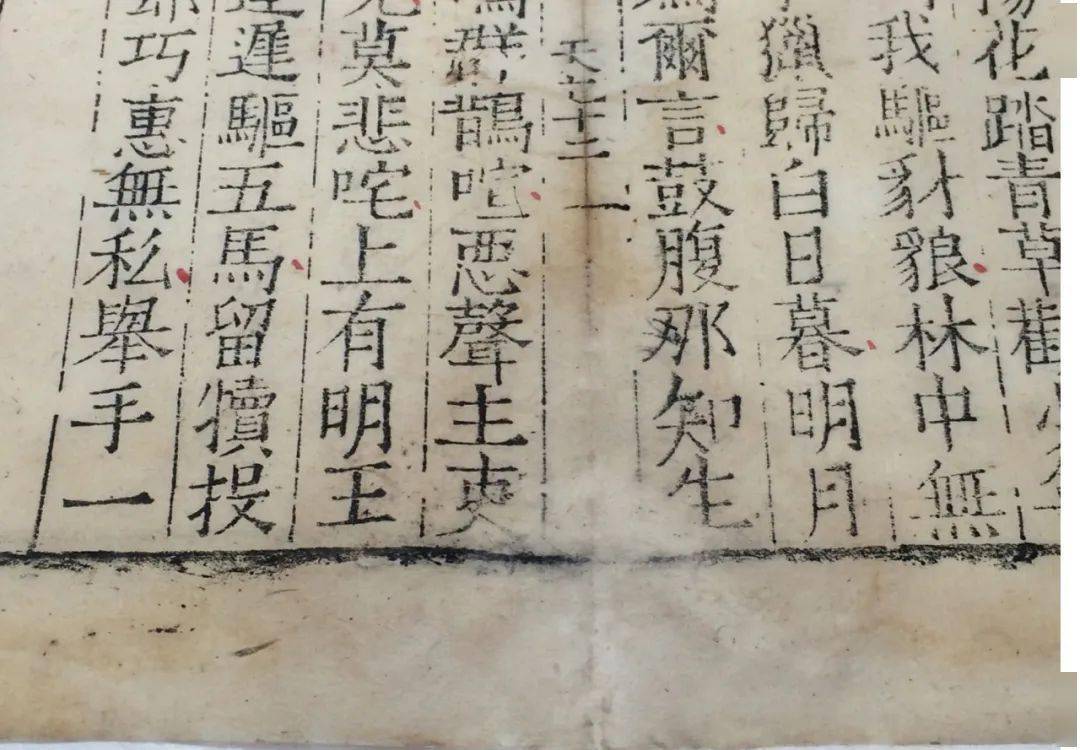 花踏青草截
我驅豺狼林中無
獵歸白日暮明月
爾言鼓腹那知生
天七十三
群鵲喧惡聲主吏
莫悲咤上有明王
遲驅五馬留犢投
巧惠無私舉手一